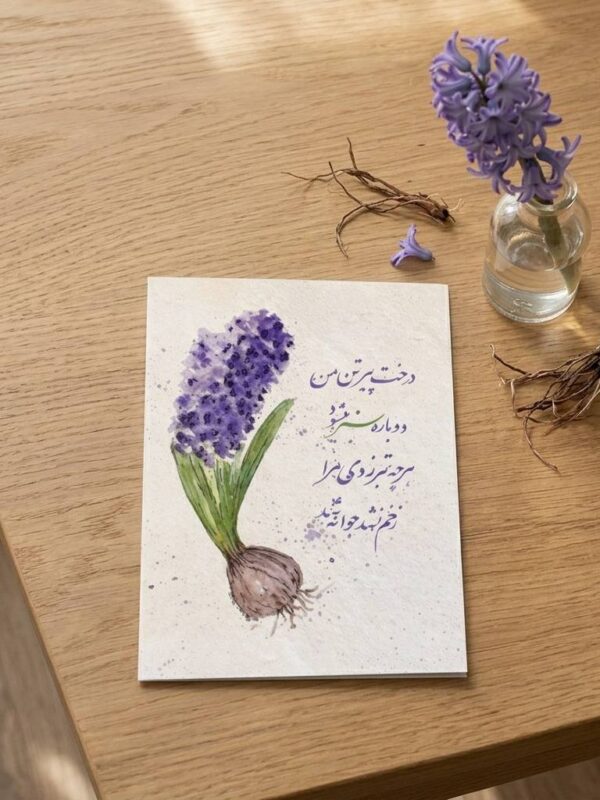 درخت پیر تن من
دوباره سبز میشود
هرچه تبر زدی مرا
زخم نشد جوانه شد